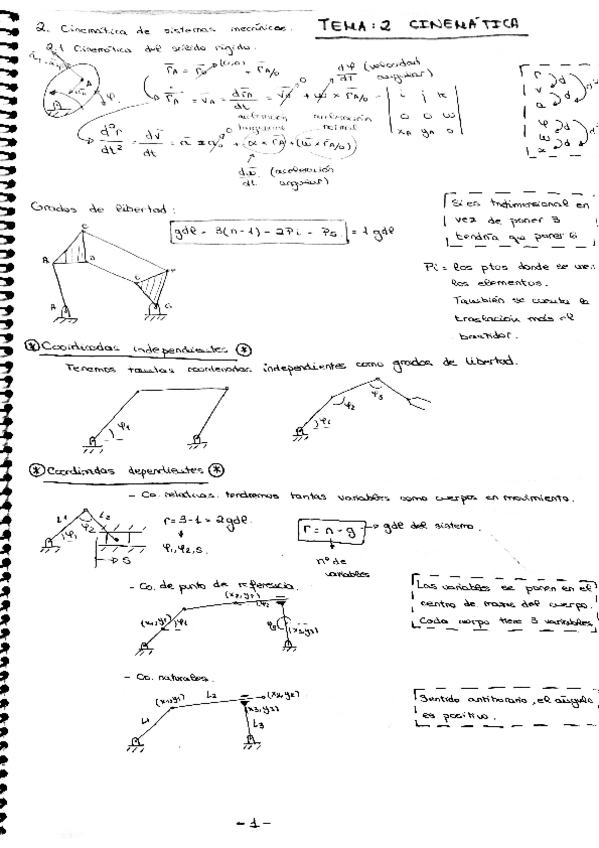 2. Cinemática de sistemas mecánicos. TEMA: 2 CINEMÁTICA
2.1 Cinemática del sólido rígido.
dφ/dt (velocidad
angular)
aceleración aceleración
tangencial normal
dw/dt (aceleración
angular)
Grados de libertad:
gdl = 3(n-1) - 2Pi - Ps = 1 gdl
Si es tridimensional en
vez de poner 3
tendría que poner 6
Pi = los ptos donde se unen
los elementos.
También se cuenta la
traslación más el
⊛ Coordinadas independientes ⊛
Tenemos tantas coordenadas independientes como grados de libertad.
φ1
φ1 φ2 φ3
⊛ Coordinadas dependientes ⊛
- Co. relativas. tendremos tantas variables como cuerpos en movimiento.
L1 L2 φ1 φ2 S
r = 3-1 = 2gdl.
φ1, φ2, s.
r = n - g → gdl del sistema.
nº de
variables
- Co. de punto de referencia.
(x1,y1) φ1 (x2,y2) φ2 φ3 (x3,y3)
Las variables se ponen en el
centro de masas del cuerpo.
Cada cuerpo tiene 3 variables
- Co. naturales.
(x1,y1) L2 (x2,y2)
(x3,y3)
L1 L3
Sentido antihorario, el ángulo
es positivo.
- 1 -